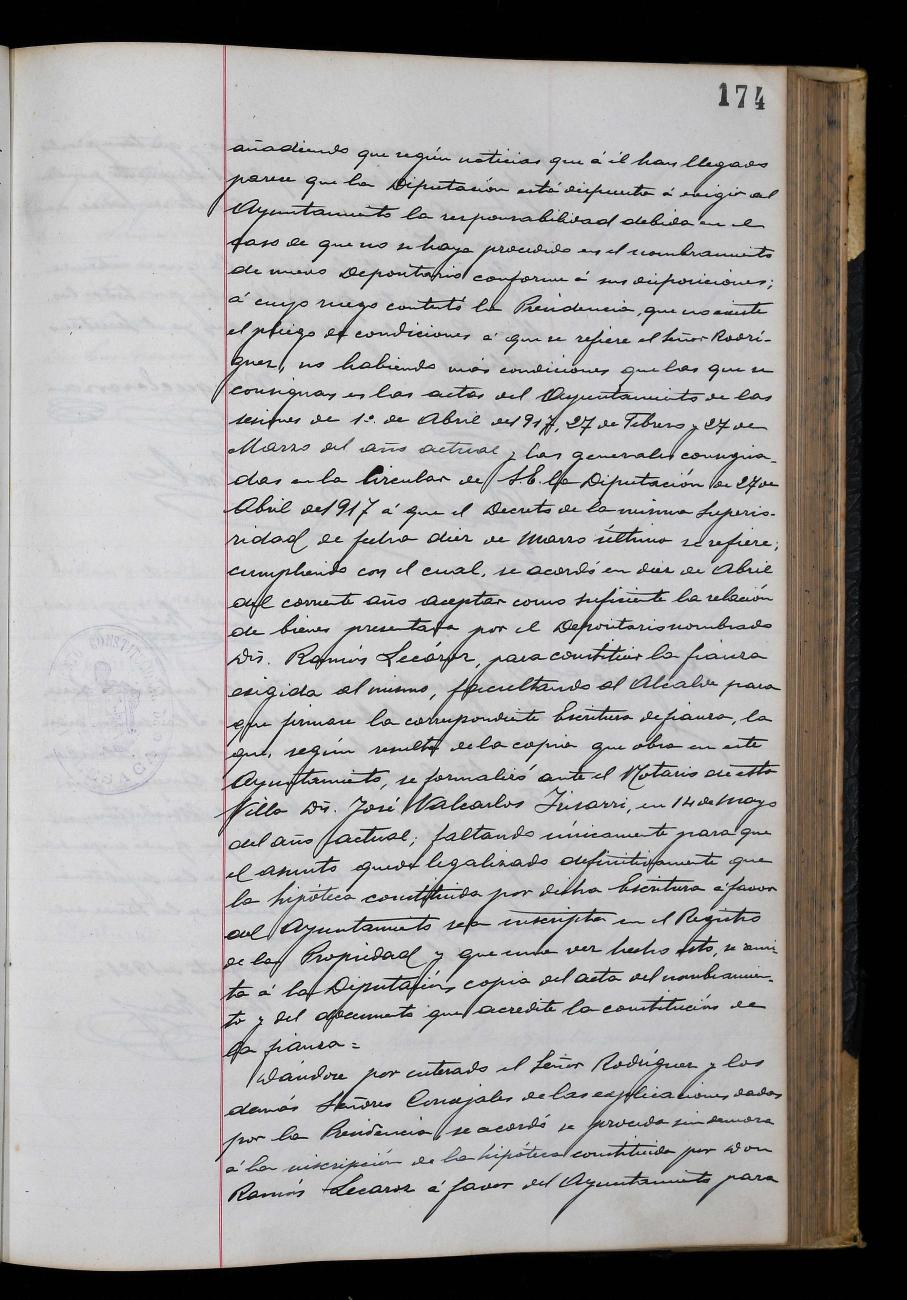 174
añadiendo que según noticias que á él han llegado
parece que la Diputación está dispuesta á exigir al
Ayuntamiento la responsabilidad debida en el
caso de que no se haya procedido en el nombramiento
de nuevo Depositario conforme á sus disposiciones;
á cuyo ruego contestó la Presidencia, que no existe
el pliego de condiciones á que se refiere el Señor Rodrí-
guez, no habiendo más condiciones que las que se
consignan en las actas del Ayuntamiento de las
sesiones de 1º de Abril de 1917, 27 de Febrero y 27 de
Marzo del año actual y las generales consigna-
das en la Circular de S.E. la Diputación de 27 de
Abril de 1917 á que el Decreto de la misma Superio-
ridad de fecha diez de Marzo último se refiere;
cumpliendo con el cual, se acordó en diez de Abril
del corriente año aceptar como suficiente la relación
de bienes presentada por el Depositario nombrado
Dn. Ramón Lecároz, para constituir la fianza
exigida al mismo, facultando al Alcalde para
que firmase la correspondiente Escritura de fianza, la
que, según resulta de la copia que obra en este
Ayuntamiento, se formalizó ante el Notario de esta
Villa Dn. José Walcarlos Irisarri, en 14 de Mayo
del año actual; faltando únicamente para que
el asunto quede legalizado definitivamente que
la hipóteca constituida por dicha Escritura á favor
del Ayuntamiento sea inscripta en el Registro
de la Propiedad y que una vez hecho esto, se remi-
ta á la Diputación copia del acta del nombramien-
to y del documento que acredite la constitución de
la fianza =
Dándose por enterado el Señor Rodríguez y los
demás Señores Concejales de las explicaciones dadas
por la Presidencia, se acordó se proceda sin demora
á la inscripción de la hipóteca constituida por Don
Ramón Lecaroz á favor del Ayuntamiento para